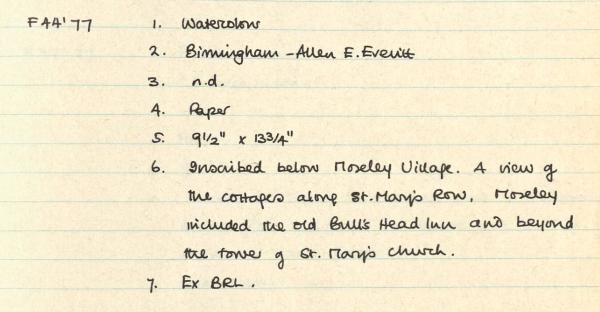 F44'77 1. Watercolour
2. Birmingham - Allen E. Everitt
3. n.d.
4. Paper
5. 9 1/2" x 13 3/4"
6. Inscribed below Moseley Village. A view of
the cottages along St. Mary's Row, Moseley
included the old Bull's Head Inn and beyond
the tower of St. Mary's church.
7. Ex BRL.